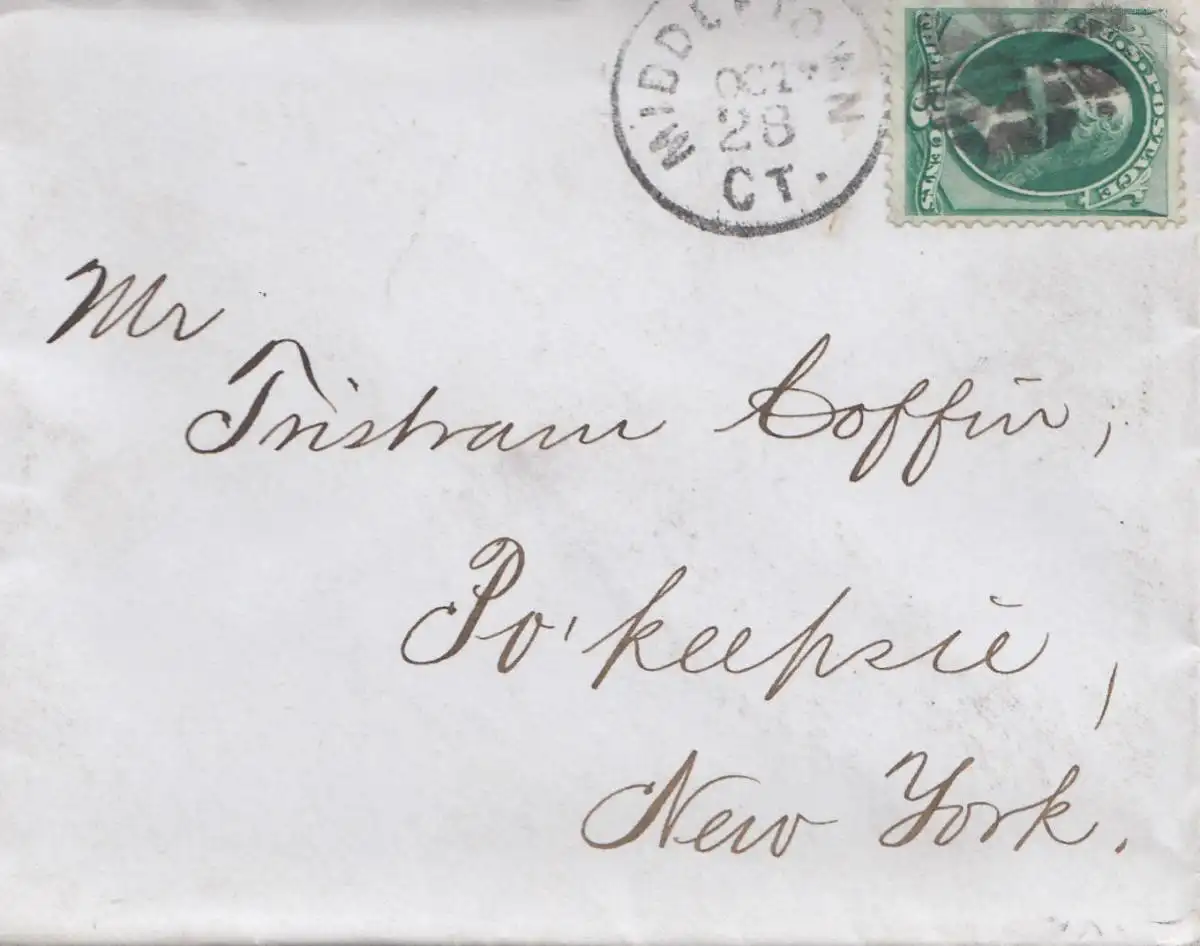 MIDDLETOWN
OCT
28
CT.
U.S. POSTAGE
Mr
Tristram Coffin,
Po'keepsie,
New York.